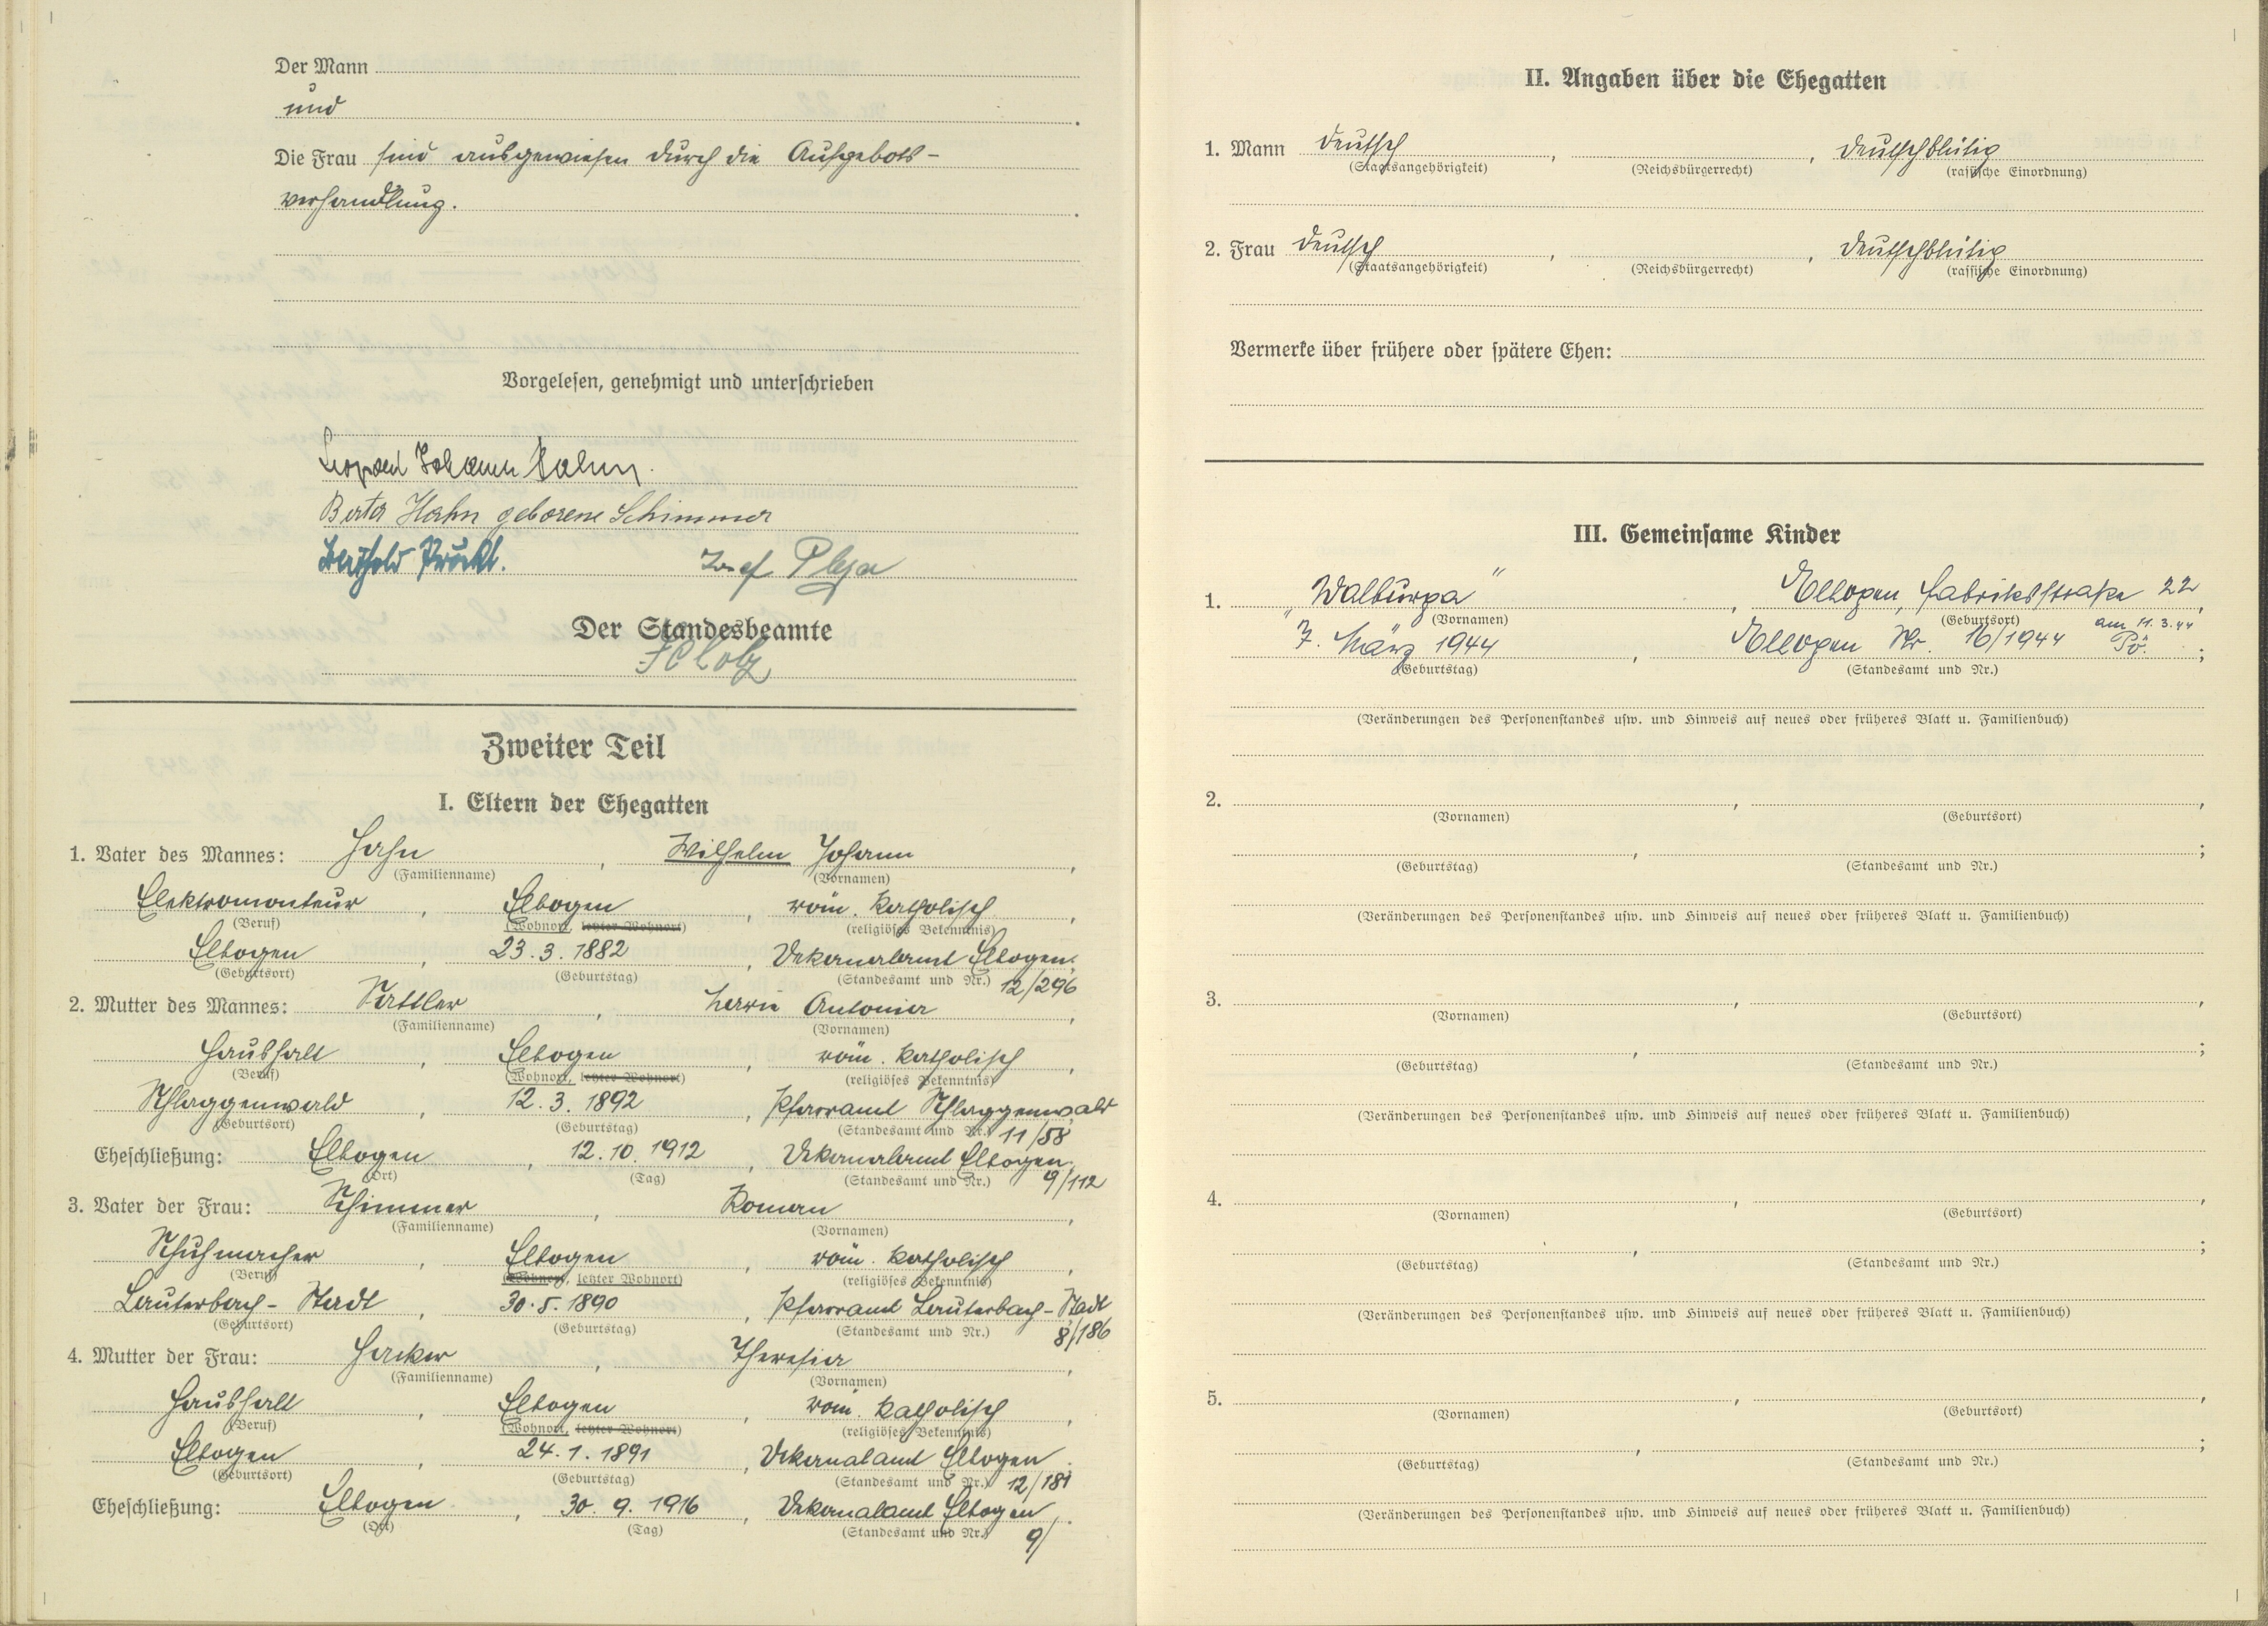 Der Mann
und
Die Frau sind ausgewiesen durch die Aufgebots-
verhandlung.
Vorgelesen, genehmigt und unterschrieben
Leopold Johann Hahn.
Berta Hahn geborene Schimmer
Josef
Der Standesbeamte
Scholz
Zweiter Teil
I. Eltern der Ehegatten
1. Vater des Mannes: Hahn, Wilhelm Johann,
(Familienname) (Vornamen)
Elektromonteur, Elbogen, röm. katholisch,
(Beruf) (Wohnort, letzter Wohnort) (religiöses Bekenntnis)
Elbogen, 23.3.1882, Dekanalamt Elbogen,
(Geburtsort) (Geburtstag) (Standesamt und Nr.) 12/296
2. Mutter des Mannes: Sattler, Maria Antonia,
(Familienname) (Vornamen)
Haushalt, Elbogen, röm. katholisch,
(Beruf) (Wohnort, letzter Wohnort) (religiöses Bekenntnis)
Schlaggenwald, 12.3.1892, Pfarramt Schlaggenwald
(Geburtsort) (Geburtstag) (Standesamt und Nr.) 11/58
Eheschließung: Elbogen, 12.10.1912, Dekanalamt Elbogen.
(Ort) (Tag) (Standesamt und Nr.) 9/112
3. Vater der Frau: Schimmer, Roman,
(Familienname) (Vornamen)
Schuhmacher, Elbogen, röm. katholisch,
(Beruf) (Wohnort, letzter Wohnort) (religiöses Bekenntnis)
Lauterbach-Stadt, 30.5.1890, Pfarramt Lauterbach-Stadt
(Geburtsort) (Geburtstag) (Standesamt und Nr.) 8/186
4. Mutter der Frau: Hacker, Theresia,
(Familienname) (Vornamen)
Haushalt, Elbogen, röm. katholisch,
(Beruf) (Wohnort, letzter Wohnort) (religiöses Bekenntnis)
Elbogen, 24.1.1891, Dekanalamt Elbogen.
(Geburtsort) (Geburtstag) (Standesamt und Nr.) 12/181
Eheschließung: Elbogen, 30.9.1916, Dekanalamt Elbogen.
(Ort) (Tag) (Standesamt und Nr.) 9/
II. Angaben über die Ehegatten
1. Mann deutsch, , deutschblütig
(Staatsangehörigkeit) (Reichsbürgerrecht) (rassische Einordnung)
2. Frau deutsch, , deutschblütig
(Staatsangehörigkeit) (Reichsbürgerrecht) (rassische Einordnung)
Vermerke über frühere oder spätere Ehen:
III. Gemeinsame Kinder
1. „Walburga", Elbogen, Fabriksstraße 22,
(Vornamen) (Geburtsort) am 11.3.44
7. März 1944, Elbogen Nr. 16/1944 Pö.;
(Geburtstag) (Standesamt und Nr.)
(Veränderungen des Personenstandes usw. und Hinweis auf neues oder früheres Blatt u. Familienbuch)
2. , ,
(Vornamen) (Geburtsort)
, ;
(Geburtstag) (Standesamt und Nr.)
(Veränderungen des Personenstandes usw. und Hinweis auf neues oder früheres Blatt u. Familienbuch)
3. , ,
(Vornamen) (Geburtsort)
, ;
(Geburtstag) (Standesamt und Nr.)
(Veränderungen des Personenstandes usw. und Hinweis auf neues oder früheres Blatt u. Familienbuch)
4. , ,
(Vornamen) (Geburtsort)
, ;
(Geburtstag) (Standesamt und Nr.)
(Veränderungen des Personenstandes usw. und Hinweis auf neues oder früheres Blatt u. Familienbuch)
5. , ,
(Vornamen) (Geburtsort)
, ;
(Geburtstag) (Standesamt und Nr.)
(Veränderungen des Personenstandes usw. und Hinweis auf neues oder früheres Blatt u. Familienbuch)